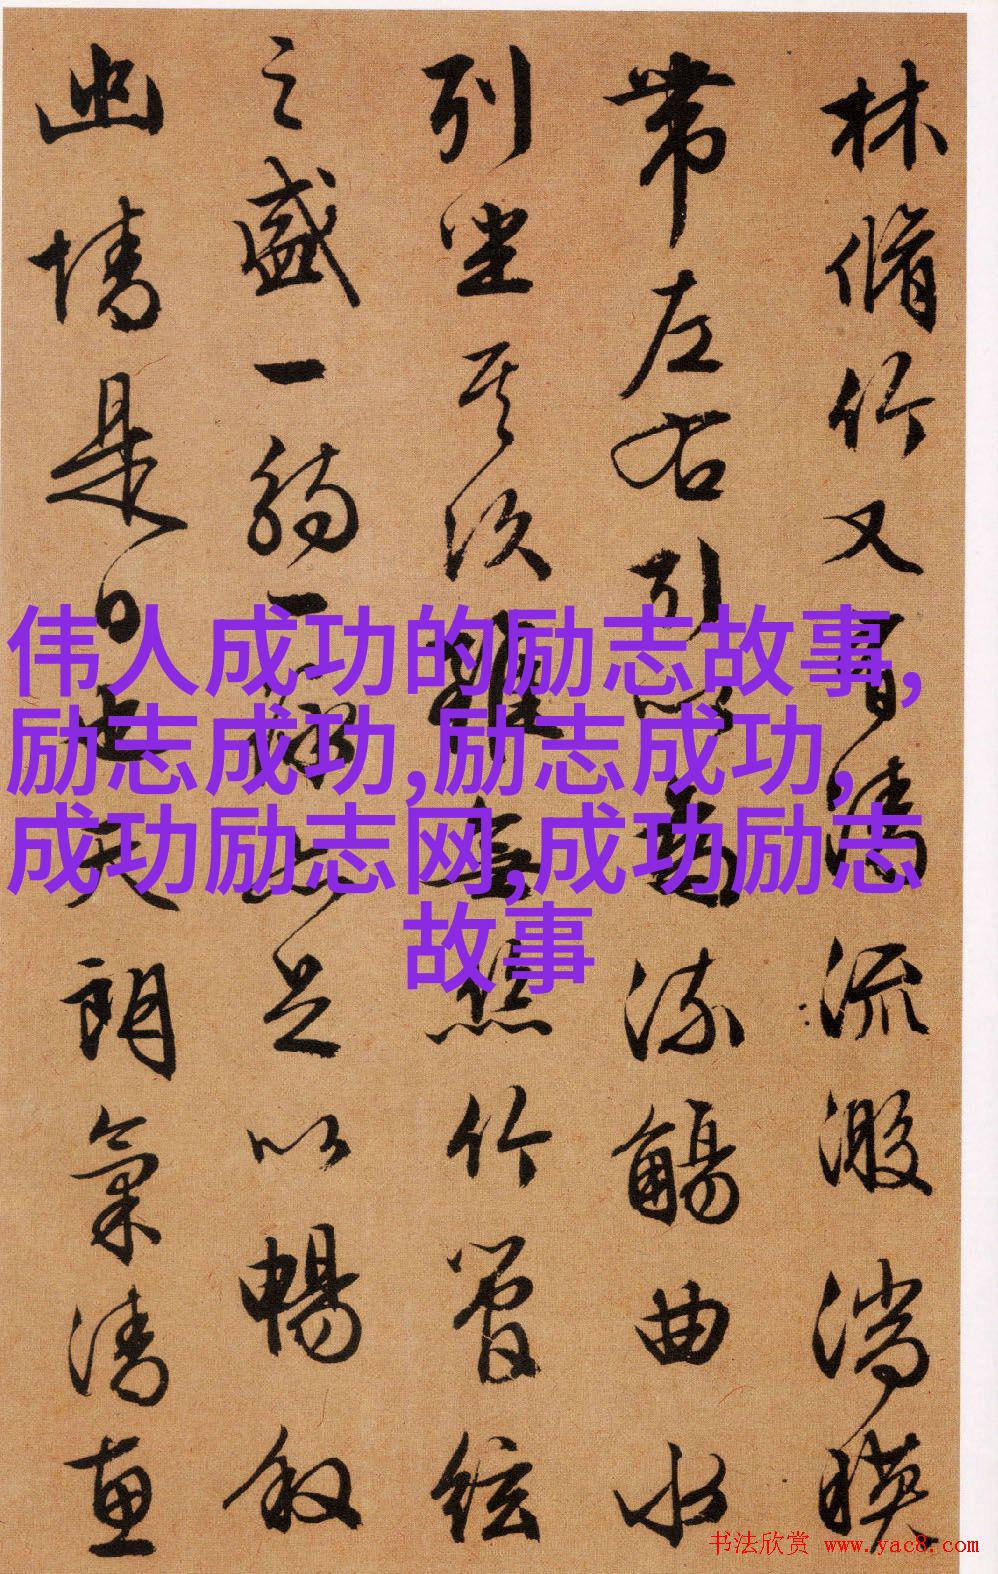 林脩竹又有清流激湍暎
帶左右引以為流觴曲水
列坐其次雖無絲竹管絃
之盛一觴一詠亦足以暢敘
幽情是日也天朗氣清惠
伟人成功的励志故事,
励志成功,励志成功,
成功励志网,成功励志
故事
书法欣赏 www.yac8.com